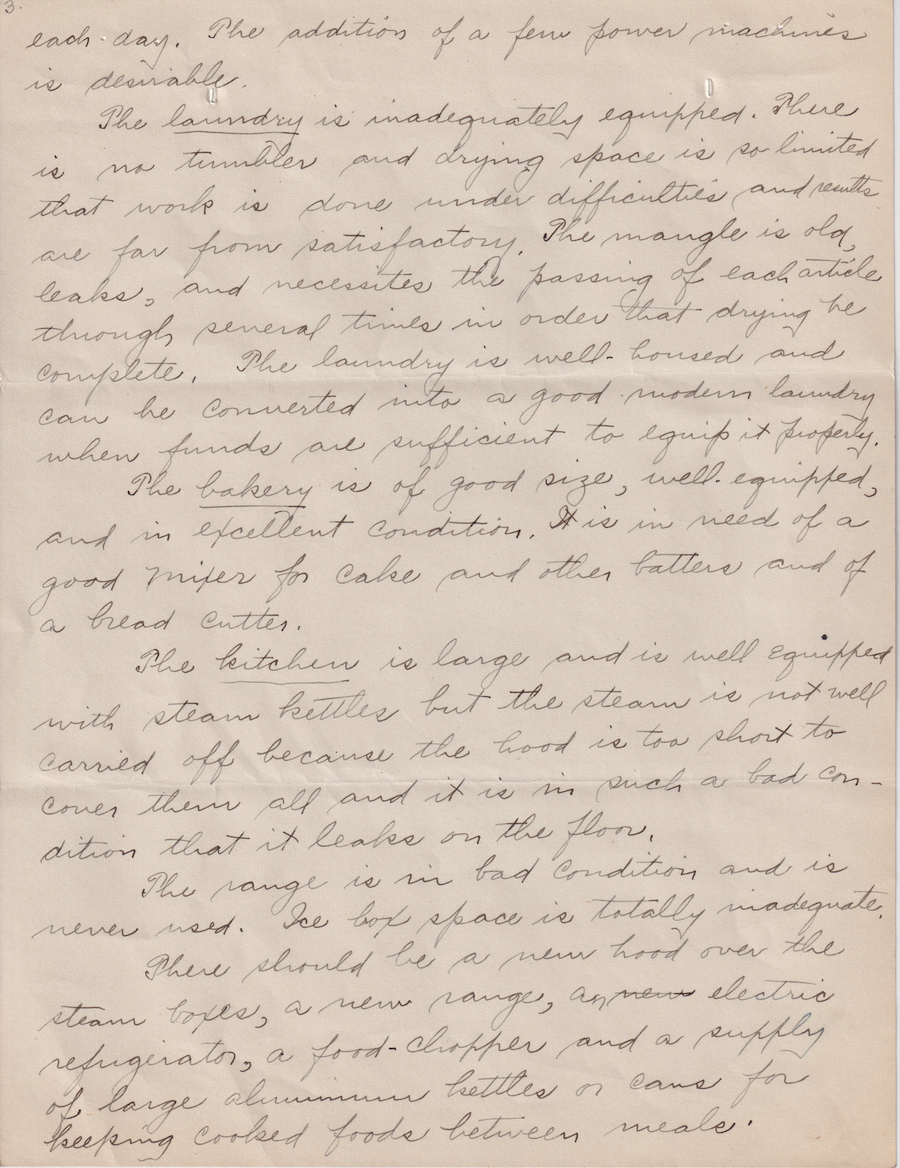 3.
each day. The addition of a few power machines
is desirable.
The laundry is inadequately equipped. There
is no tumbler and drying space is so limited
that work is done under difficulties and results
are far from satisfactory. The mangle is old,
leaks, and necessites the passing of each article
through several times in order that drying be
complete. The laundry is well-housed and
can be converted into a good modern laundry
when funds are sufficient to equip it properly.
The bakery is of good size, well-equipped,
and in excellent condition. It is in need of a
good mixer for cake and other batters and of
a bread cutter.
The kitchen is large and is well equipped
with steam kettles but the steam is not well
carried off because the hood is too short to
cover them all and it is in such a bad con-
dition that it leaks on the floor.
The range is in bad condition and is
never used. Ice box space is totally inadequate.
There should be a new hood over the
steam boxes, a new range, an new electric
refrigerator, a food-chopper and a supply
of large aluminum kettles or cans for
keeping cooked foods between meals.